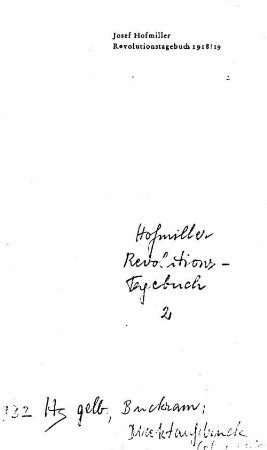 Josef Hofmiller
Revolutionstagebuch 1918/19
2
Hofmiller
Revolutions-
Tagebuch
2
132 Hs gelb, Buckram;
Direktaufdruck